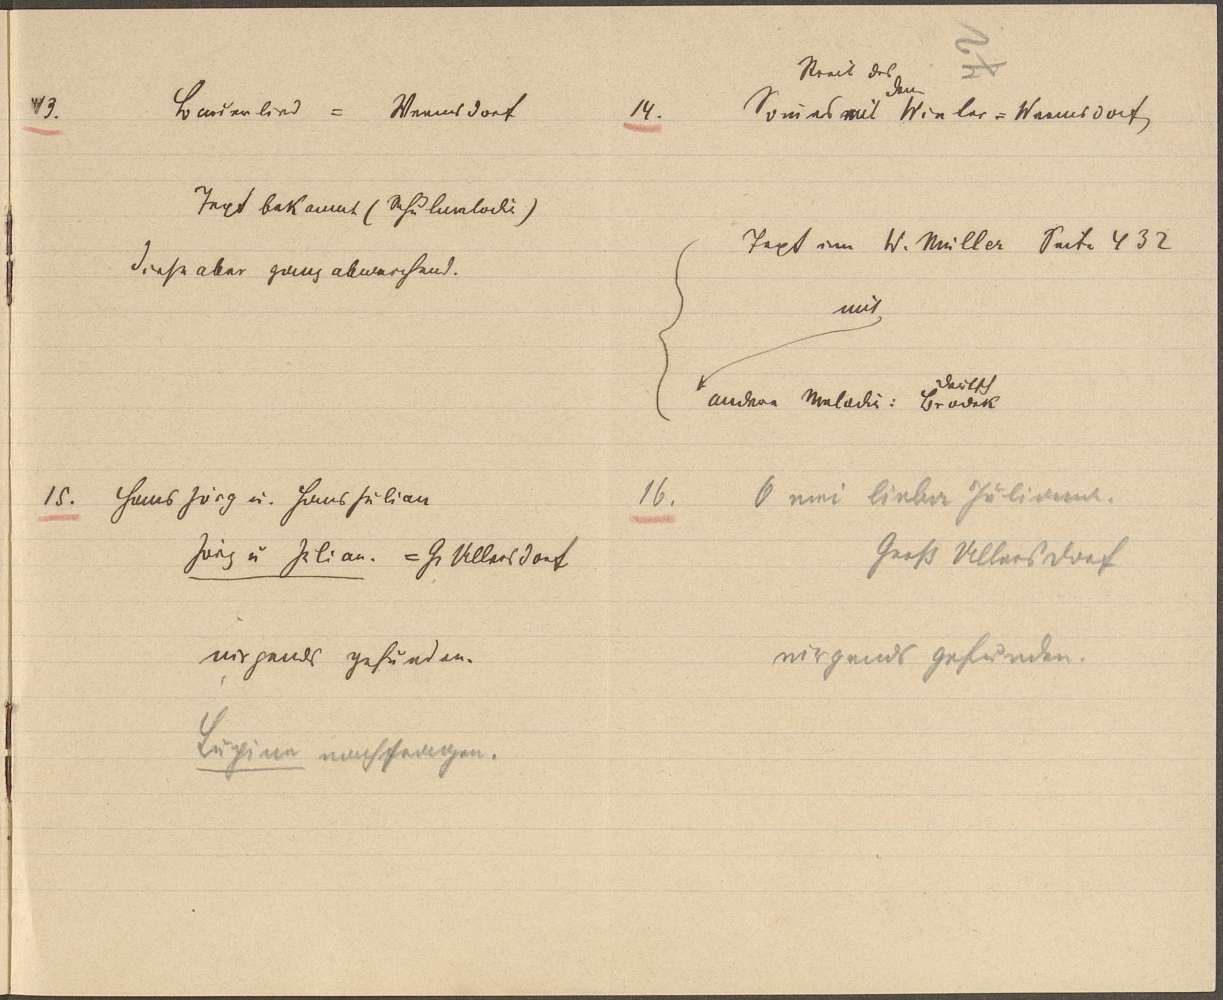 13. Bauernlied = Wermsdorf
Text bekannt (Schulmelodie)
diese aber ganz abweichend.
14. Streit des
Sommers mit den Winter = Wermsdorf
Text im W. Müller Seite 432
mit
andere Melodie: deutsch
Brodek
15. Hans Jörg u. Hans Julian
Jörg u Julian. = Gr Ullersdorf
nirgends gefunden.
nachfragen.
16. O mei lieber Juliana.
Groß Ullersdorf
nirgends gefunden.